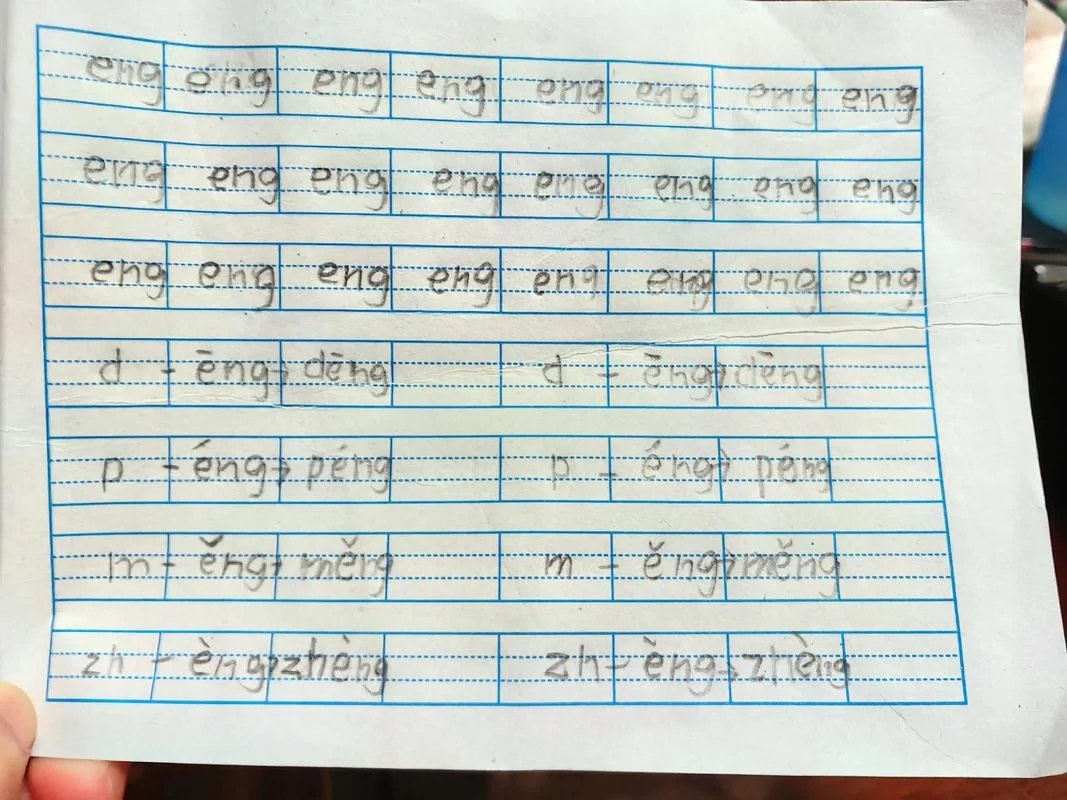 eng eng eng eng eng eng eng eng
eng eng eng eng eng eng eng eng
eng eng eng eng eng eng eng eng
d - ēng → dēng d - ēng → dēng
p - éng → péng p - éng → péng
m - ěng → měng m - ěng → měng
zh - èng → zhèng zh - èng → zhèng